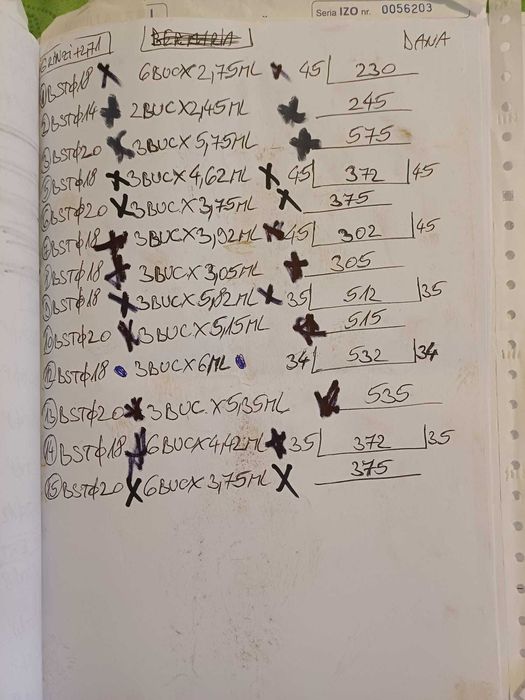 Seria IZO nr. 0056203
GRINZI +2,71 DANA
① BSTφ18 X 6BUC X 2,75ML X 45 230
② BSTφ14 X 2BUC X 2,45ML X 245
③ BSTφ20 X 3BUC X 5,75ML X 575
⑤ BSTφ18 X 3BUC X 4,62ML X 45 372 45
⑥ BSTφ20 X 3BUC X 3,75ML X 375
BSTφ18 X 3BUC X 3,92ML X 45 302 45
BSTφ18 X 3BUC X 3,05ML X 305
BSTφ18 X 3BUC X 5,82ML X 35 512 35
⑩ BSTφ20 X 3BUC X 5,15ML X 515
⑫ BSTφ18 3BUC X 6ML 34 532 34
⑬ BSTφ20 X 3BUC. X 5,35ML X 535
⑭ BSTφ18 X 6BUC X 4,42ML X 35 372 35
⑮ BSTφ20 X 6BUC X 3,75ML X 375